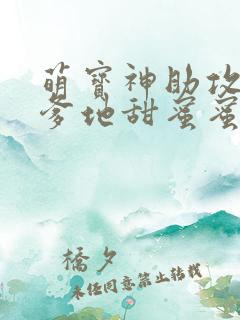 萌宝神助攻
爹地甜蜜蜜
橋夕
未经同意禁止转载